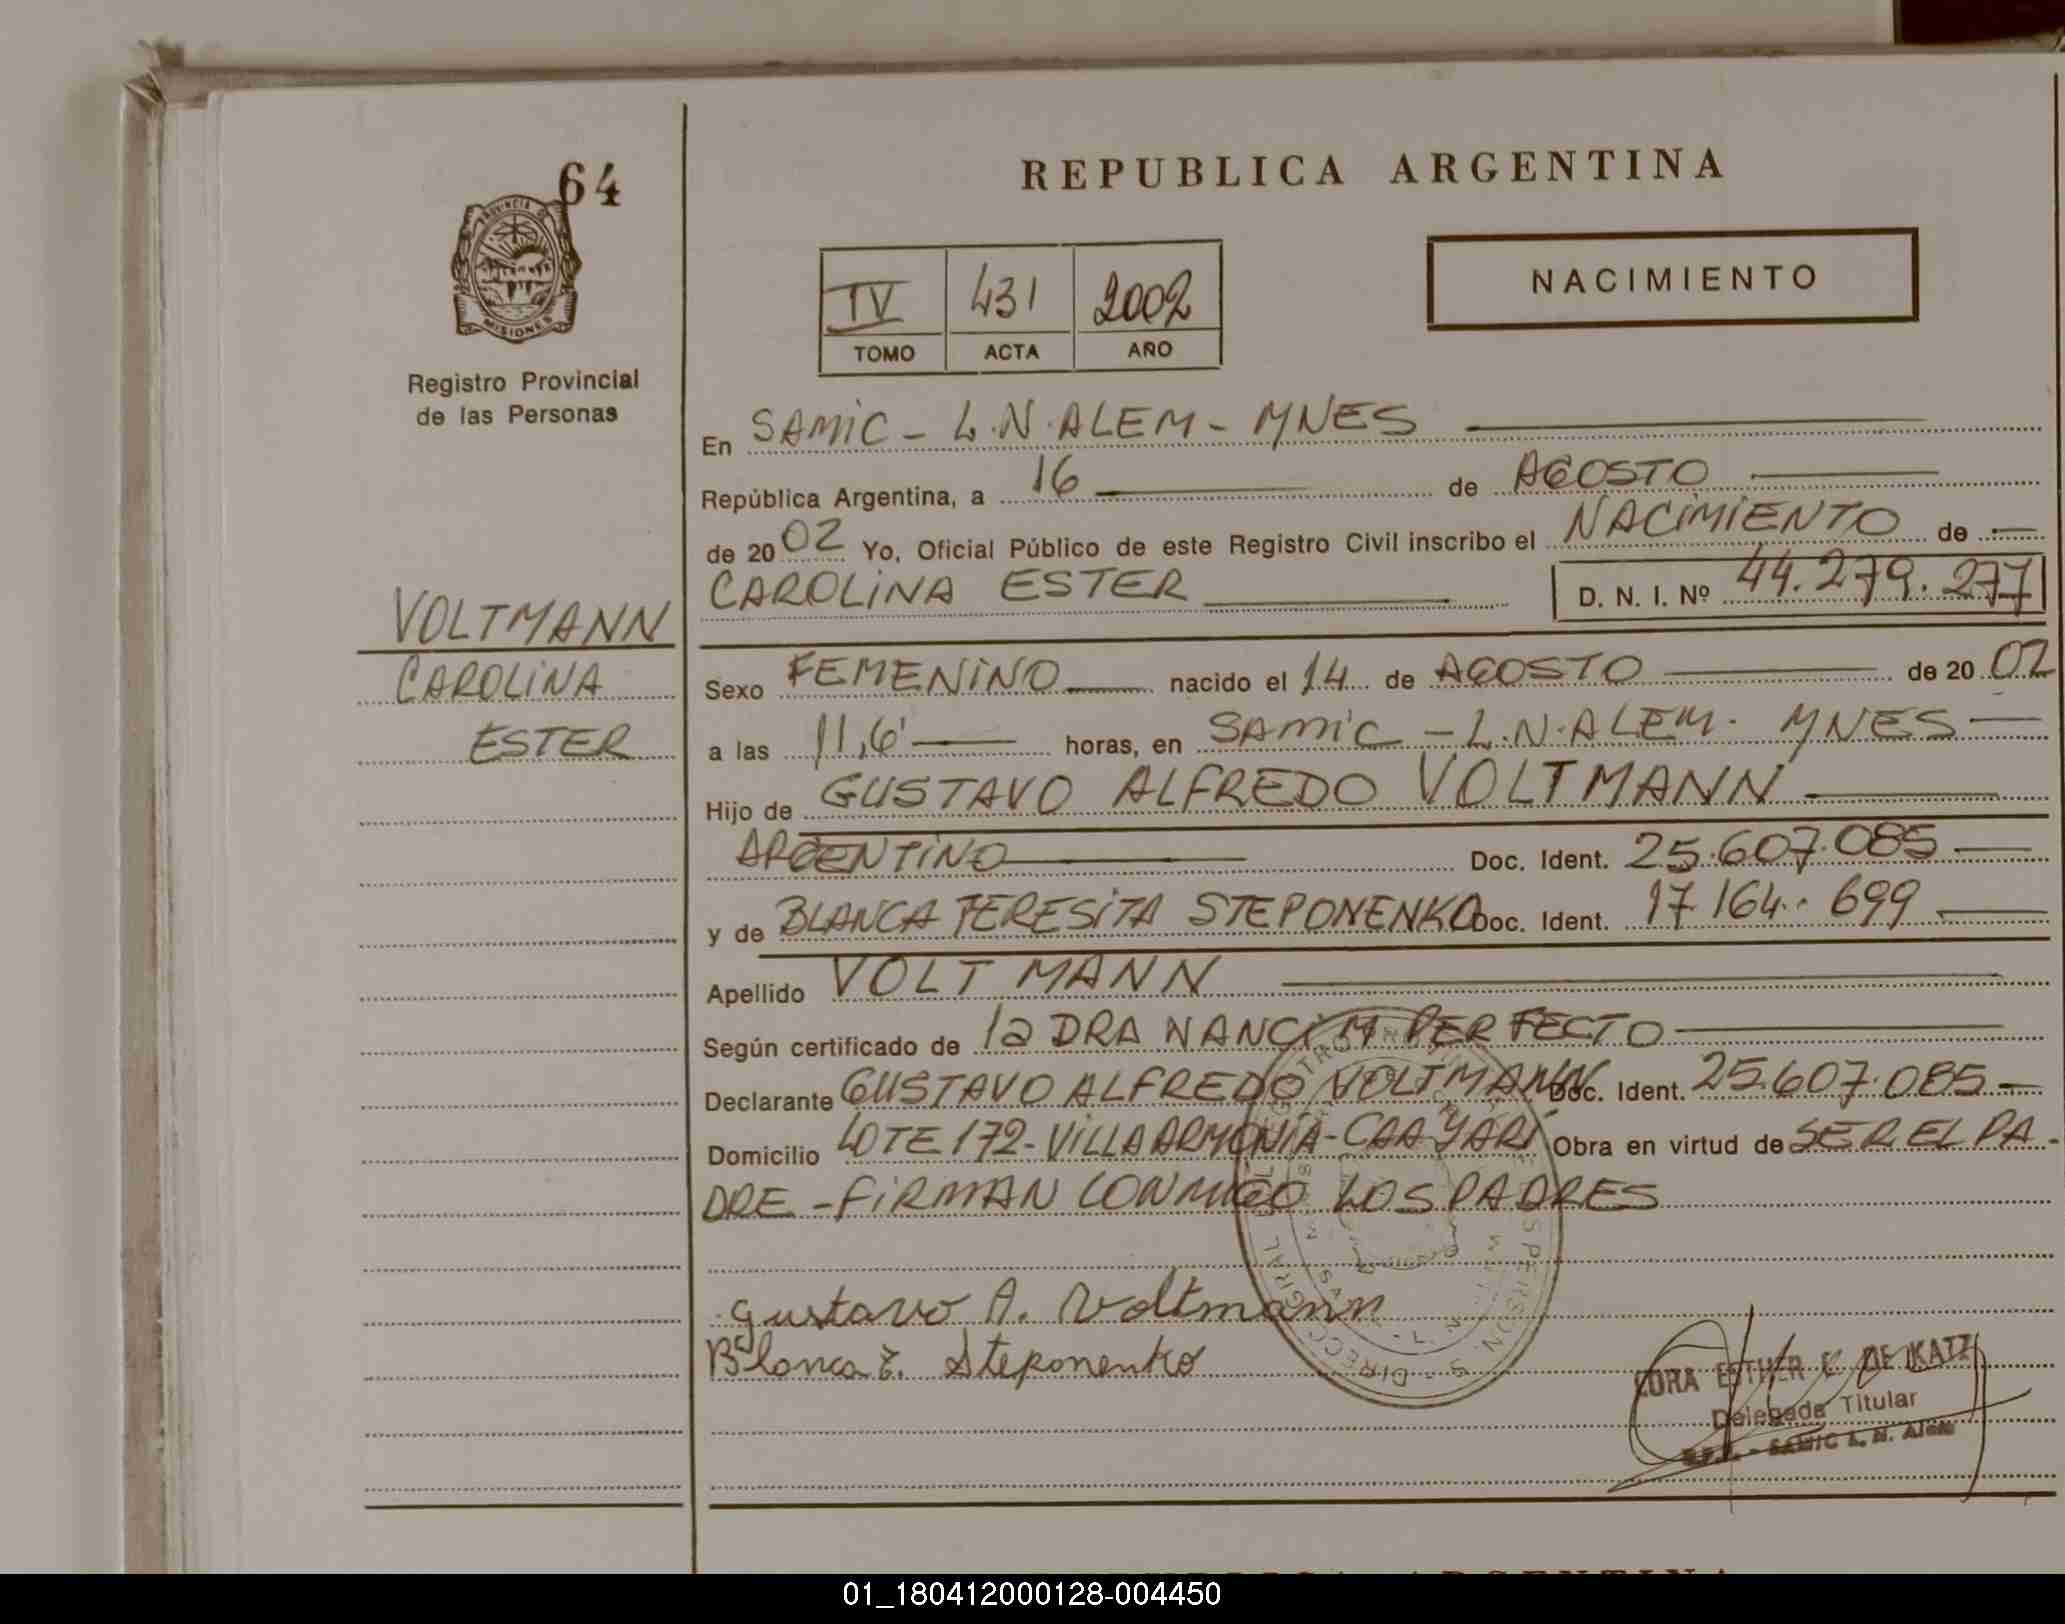 64
PROVINCIA DE
MISIONES
Registro Provincial
de las Personas
VOLTMANN
CAROLINA
ESTER
REPUBLICA ARGENTINA
NACIMIENTO
IV 431 2002
TOMO ACTA AÑO
En SAMIC - L.N.ALEM - MNES
República Argentina, a 16 de AGOSTO
de 2002 Yo, Oficial Público de este Registro Civil inscribo el NACIMIENTO de
CAROLINA ESTER D. N. I. Nº 44.279.277
Sexo FEMENINO nacido el 14 de AGOSTO de 2002
a las 11,6' horas, en SAMIC - L.N.ALEM. MNES
Hijo de GUSTAVO ALFREDO VOLTMANN
ARGENTINO Doc. Ident. 25.607.085
y de BLANCA TERESITA STEPONENKO Doc. Ident. 17.164.699
Apellido VOLTMANN
Según certificado de la DRA NANCI M PERFECTO
Declarante GUSTAVO ALFREDO VOLTMANN Doc. Ident. 25.607.085
Domicilio LOTE 172 - VILLA ARMONIA - CAA YARI Obra en virtud de SER EL PA-
DRE - FIRMAN CONMIGO LOS PADRES
Gustavo A. Voltmann
Blanca T. Steponenko
ESTHER DE KATZ
Delegada Titular
SAMIC L. N. Alem
REPUBLICA ARGENTINA
01_180412000128-004450